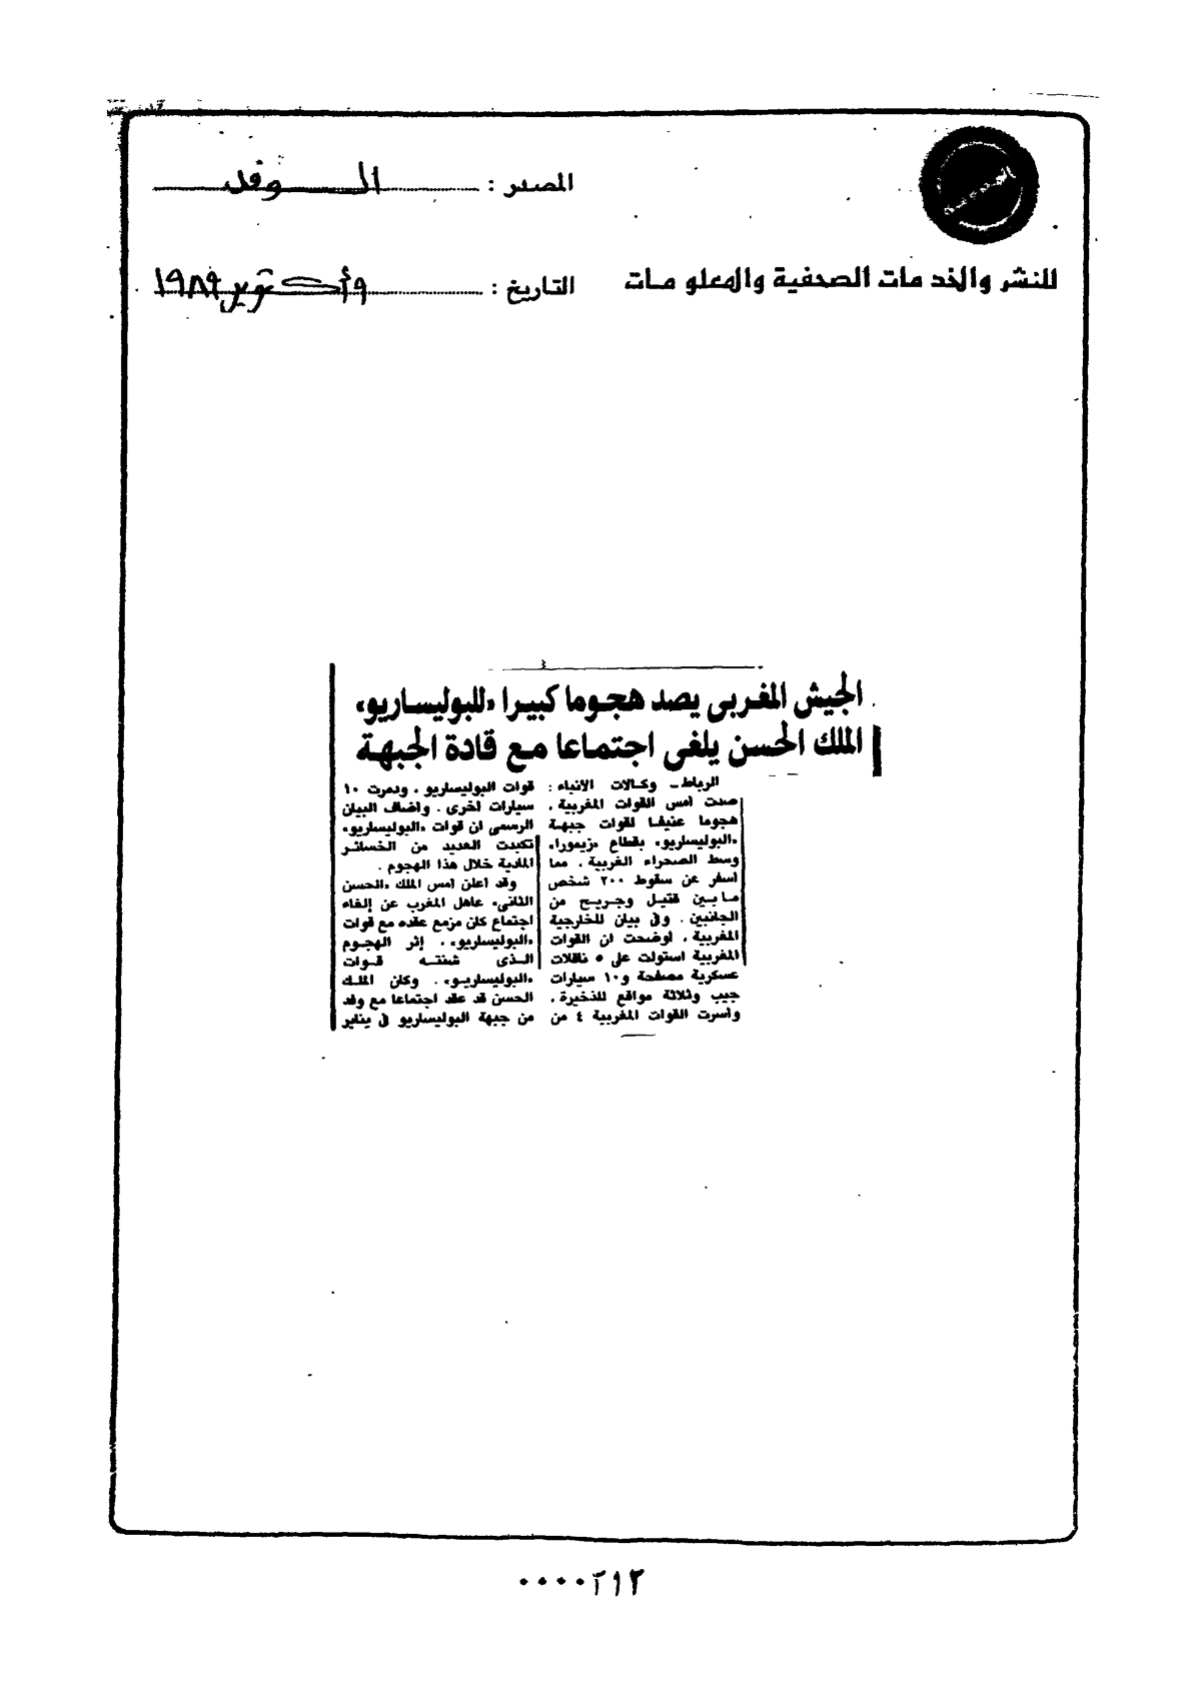 المصدر : الـوفد
للنشر والخدمات الصحفية والمعلومات
التاريخ : ٩ أكتوبر ١٩٨٩
الجيش المغربى يصد هجوما كبيرا «للبوليساريو»
الملك الحسن يلغى اجتماعا مع قادة الجبهة
الرباط ـ وكالات الانباء :
صدت امس القوات المغربية ،
هجوما عنيفا لقوات جبهة
«البوليساريو» بقطاع
وسط الصحراء الغربية ، مما
اسفر عن سقوط ٢٠٠ شخص
مابين قتيل وجريح من
الجانبين . وفى بيان للخارجية
المغربية ، اوضحت ان القوات
المغربية استولت على ٥ ناقلات
عسكرية مصفحة و١٠ سيارات
جيب وثلاثة مواقع للذخيرة ،
وأسرت القوات المغربية ٤ من
قوات البوليساريو ، ودمرت ١٠
سيارات اخرى . واضاف البيان
الرسمى ان قوات «البوليساريو»
تكبدت العديد من الخسائر
المادية خلال هذا الهجوم .
وقد اعلن امس الملك «الحسن
الثانى» عاهل المغرب عن إلغاء
اجتماع كان مزمع عقده مع قوات
«البوليساريو» . إثر الهجوم
الذى شنته قوات
«البوليساريو» . وكان الملك
الحسن قد عقد اجتماعا مع وفد
من جبهة البوليساريو فى يناير